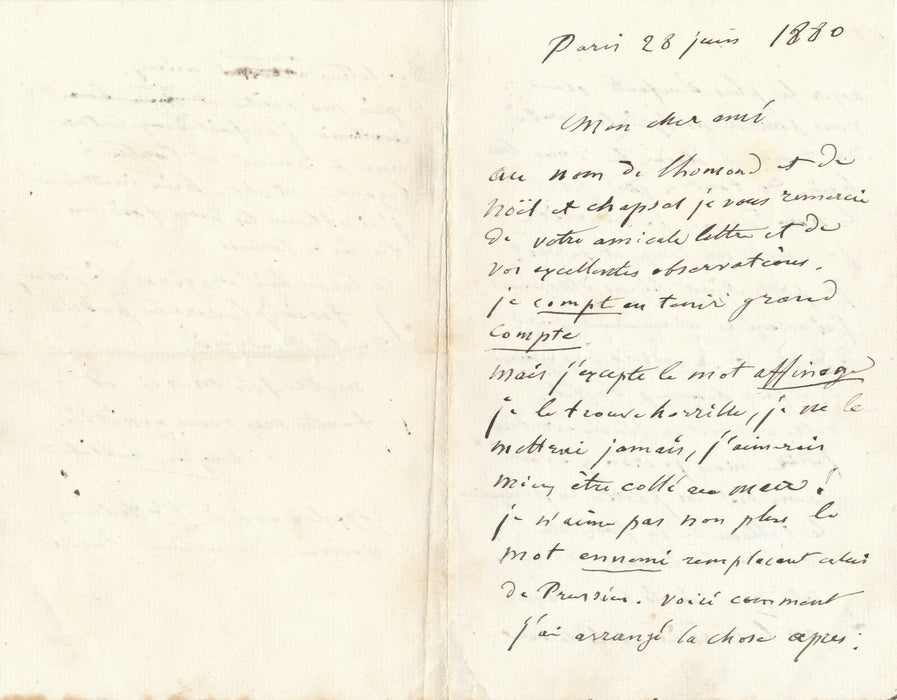 Paris 28 juin 1880
Mon cher ami
au nom de lhomond et de
Noël et chapsal je vous remercie
de votre amicale lettre et de
vos excellentes observations.
je compt en tenir grand
compte.
Mais j'excepte le mot affinage
je le trouve horrible, je ne le
mettrai jamais, j'aimerais
mieux être collé au mur !
je n'aime pas non plus le
mot ennemi remplaçant celui
de Prussien. voici comment
j'ai arrangé la chose après :